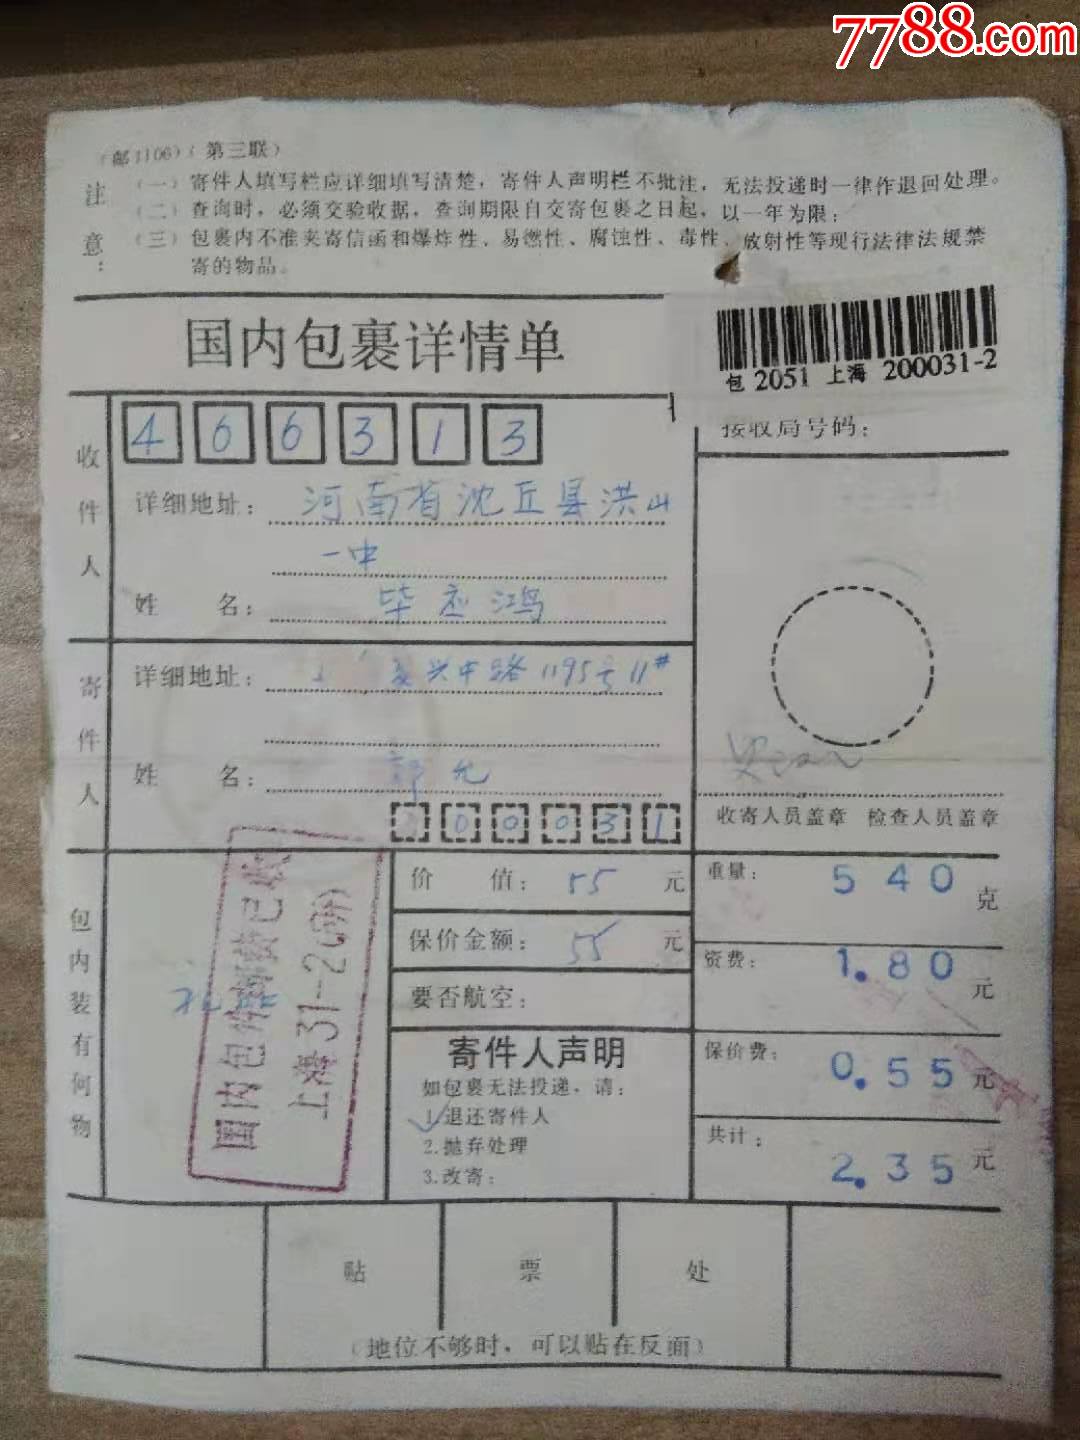 7788.com
(邮1106)(第三联)
注意：
(一) 寄件人填写栏应详细填写清楚，寄件人声明栏不批注，无法投递时一律作退回处理。
(二) 查询时，必须交验收据，查询期限自交寄包裹之日起，以一年为限；
(三) 包裹内不准夹寄信函和爆炸性、易燃性、腐蚀性、毒性、放射性等现行法律法规禁
寄的物品。
国内包裹详情单
包 2051 上海 200031-2
接收局号码：
收件人
466313
详细地址： 河南省沈丘县洪山
一中
姓 名： 毕应鸿
寄件人
详细地址： 复兴中路1195号11#
姓 名： 允
00031
收寄人员盖章 检查人员盖章
包内装有何物
国内包件资费已收
上海31-2(所)
价 值： 55 元
保价金额： 55 元
要否航空：
寄件人声明
如包裹无法投递，请：
1.退还寄件人
2.抛弃处理
3.改寄：
重量： 540 克
资费： 1.80 元
保价费： 0.55 元
共计： 2.35 元
贴 票 处
(地位不够时，可以贴在反面)